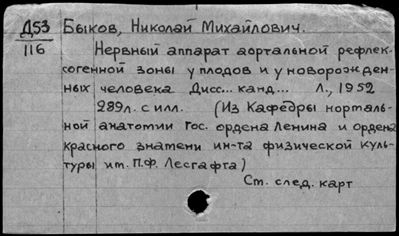 Д53 Быков, Николай Михайлович.
116
Нервный аппарат аортальной рефлек-
согенной зоны у плодов и у новорожден-
ных человека Дисс... канд... Л., 1952
289л. с илл. (Из Кафедры нормаль-
ной анатомии Гос. ордена Ленина и ордена
красного знамени ин-та физической куль-
туры им. П.Ф. Лесгафта)
Ст. след. карт